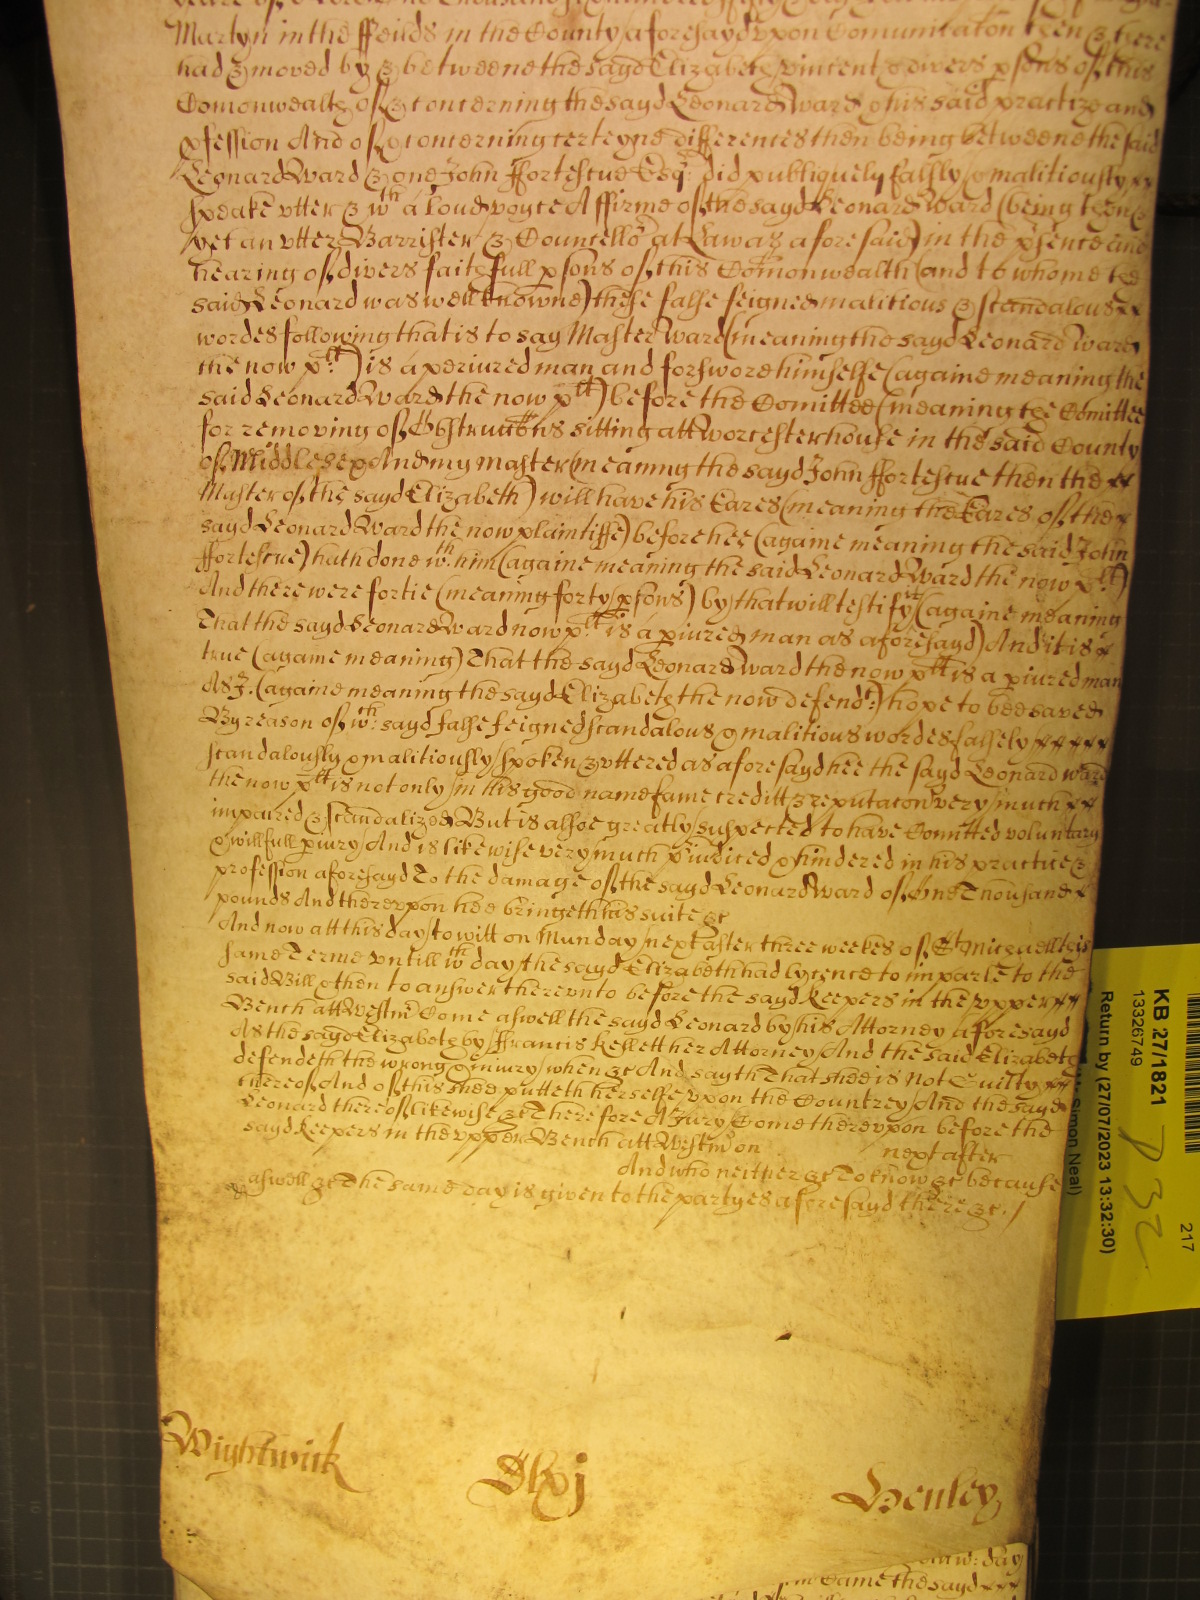 Martyn in the ffeilds in the County aforesayd vpon Comunicacon then & there
had & moved by & betweene the sayd Elizabeth vincent & divers psons of this
Comonwealth of & concerning the sayd Leonard Ward & his said practize and
pfession And of & concerning certeyne differences then being betweene the said
Leonard Ward & one John ffortescue Esqr. did publiquely falsly & malitiously
speake vtter & wth a loud voyce Affirme of the sayd Leonard Ward (being then &
yet an vtter Barrister & Councellor at Law as aforesaid) in the psence and
hearing of divers faithfull psons of this Comonwealth (and to whome the
said Leonard was well knowne) these false feigned malitious & scandalous
wordes following that is to say Master Ward (meaning the sayd Leonard Ward
the now plt.) is a periured man and forswore himselfe (againe meaning the
said Leonard Ward the now plt) before the Comittee (meaning the Comittee
for removing of Obstruccons sitting att Worcester house in the said County
of Middlesex And my master (meaning the sayd John ffortescue then the
Master of the sayd Elizabeth) will have his Eares (meaning the Eares of the
sayd Leonard Ward the now plaintiffe) before hee (againe meaning the said John
ffortescue) hath done wth. him (againe meaning the said Leonard Ward the now plt)
And there were fortie (meaning forty psons) by that will testify it (againe meaning
That the sayd Leonard Ward now plt is a piured man as aforesayd) And it is
true (againe meaning) That the sayd Leonard Ward the now plt is a piured man
As I. (againe meaning the sayd Elizabeth the now defendt.) hope to bee saved
By reason of wth. sayd false feigned scandalous & malitious wordes falsely
scandalously & malitiously spoken & vttered as aforesayd hee the sayd Leonard Ward
the now plt is not only in his good name fame creditt & reputacon very much
impaired & scandalized But is alsoe greatly suspected to have Comitted voluntary
& willfull piury And is likewise very much piudiced & hindered in his practice &
profession aforesayd To the damage of the sayd Leonard Ward of One Thousand
pounds And therevpon hee bringeth his suite &c
And now att this day to witt on Munday next after three weekes of St Michaell this
same Terme vntill wth day the sayd Elizabeth had lycence to imparle to the
said Bill & then to answer therevnto before the sayd Keepers in the vpper
Bench att Westmr Come aswell the sayd Leonard by his Attorney aforesayd
As the sayd Elizabeth by ffrancis Kellett her Attorney And the said Elizabeth
defendeth the wrong & iniury when &c And sayth That shee is Not Guilty
thereof And of this shee putteth herselfe vpon the Countrey And the sayd
Leonard thereof likewise &c Therefore A Jury Come therevpon before the
sayd Keepers in the vpper Bench att Westmr on next after
And who neither &c To know &c because
aswell &c The same day is given to the partyes aforesayd there &c. /
Wightwick
Dlxj
Henley
day
Came the sayd
KB 27/1821
13326749
Return by (27/07/2023 13:32:30)
Simon Neal)
217